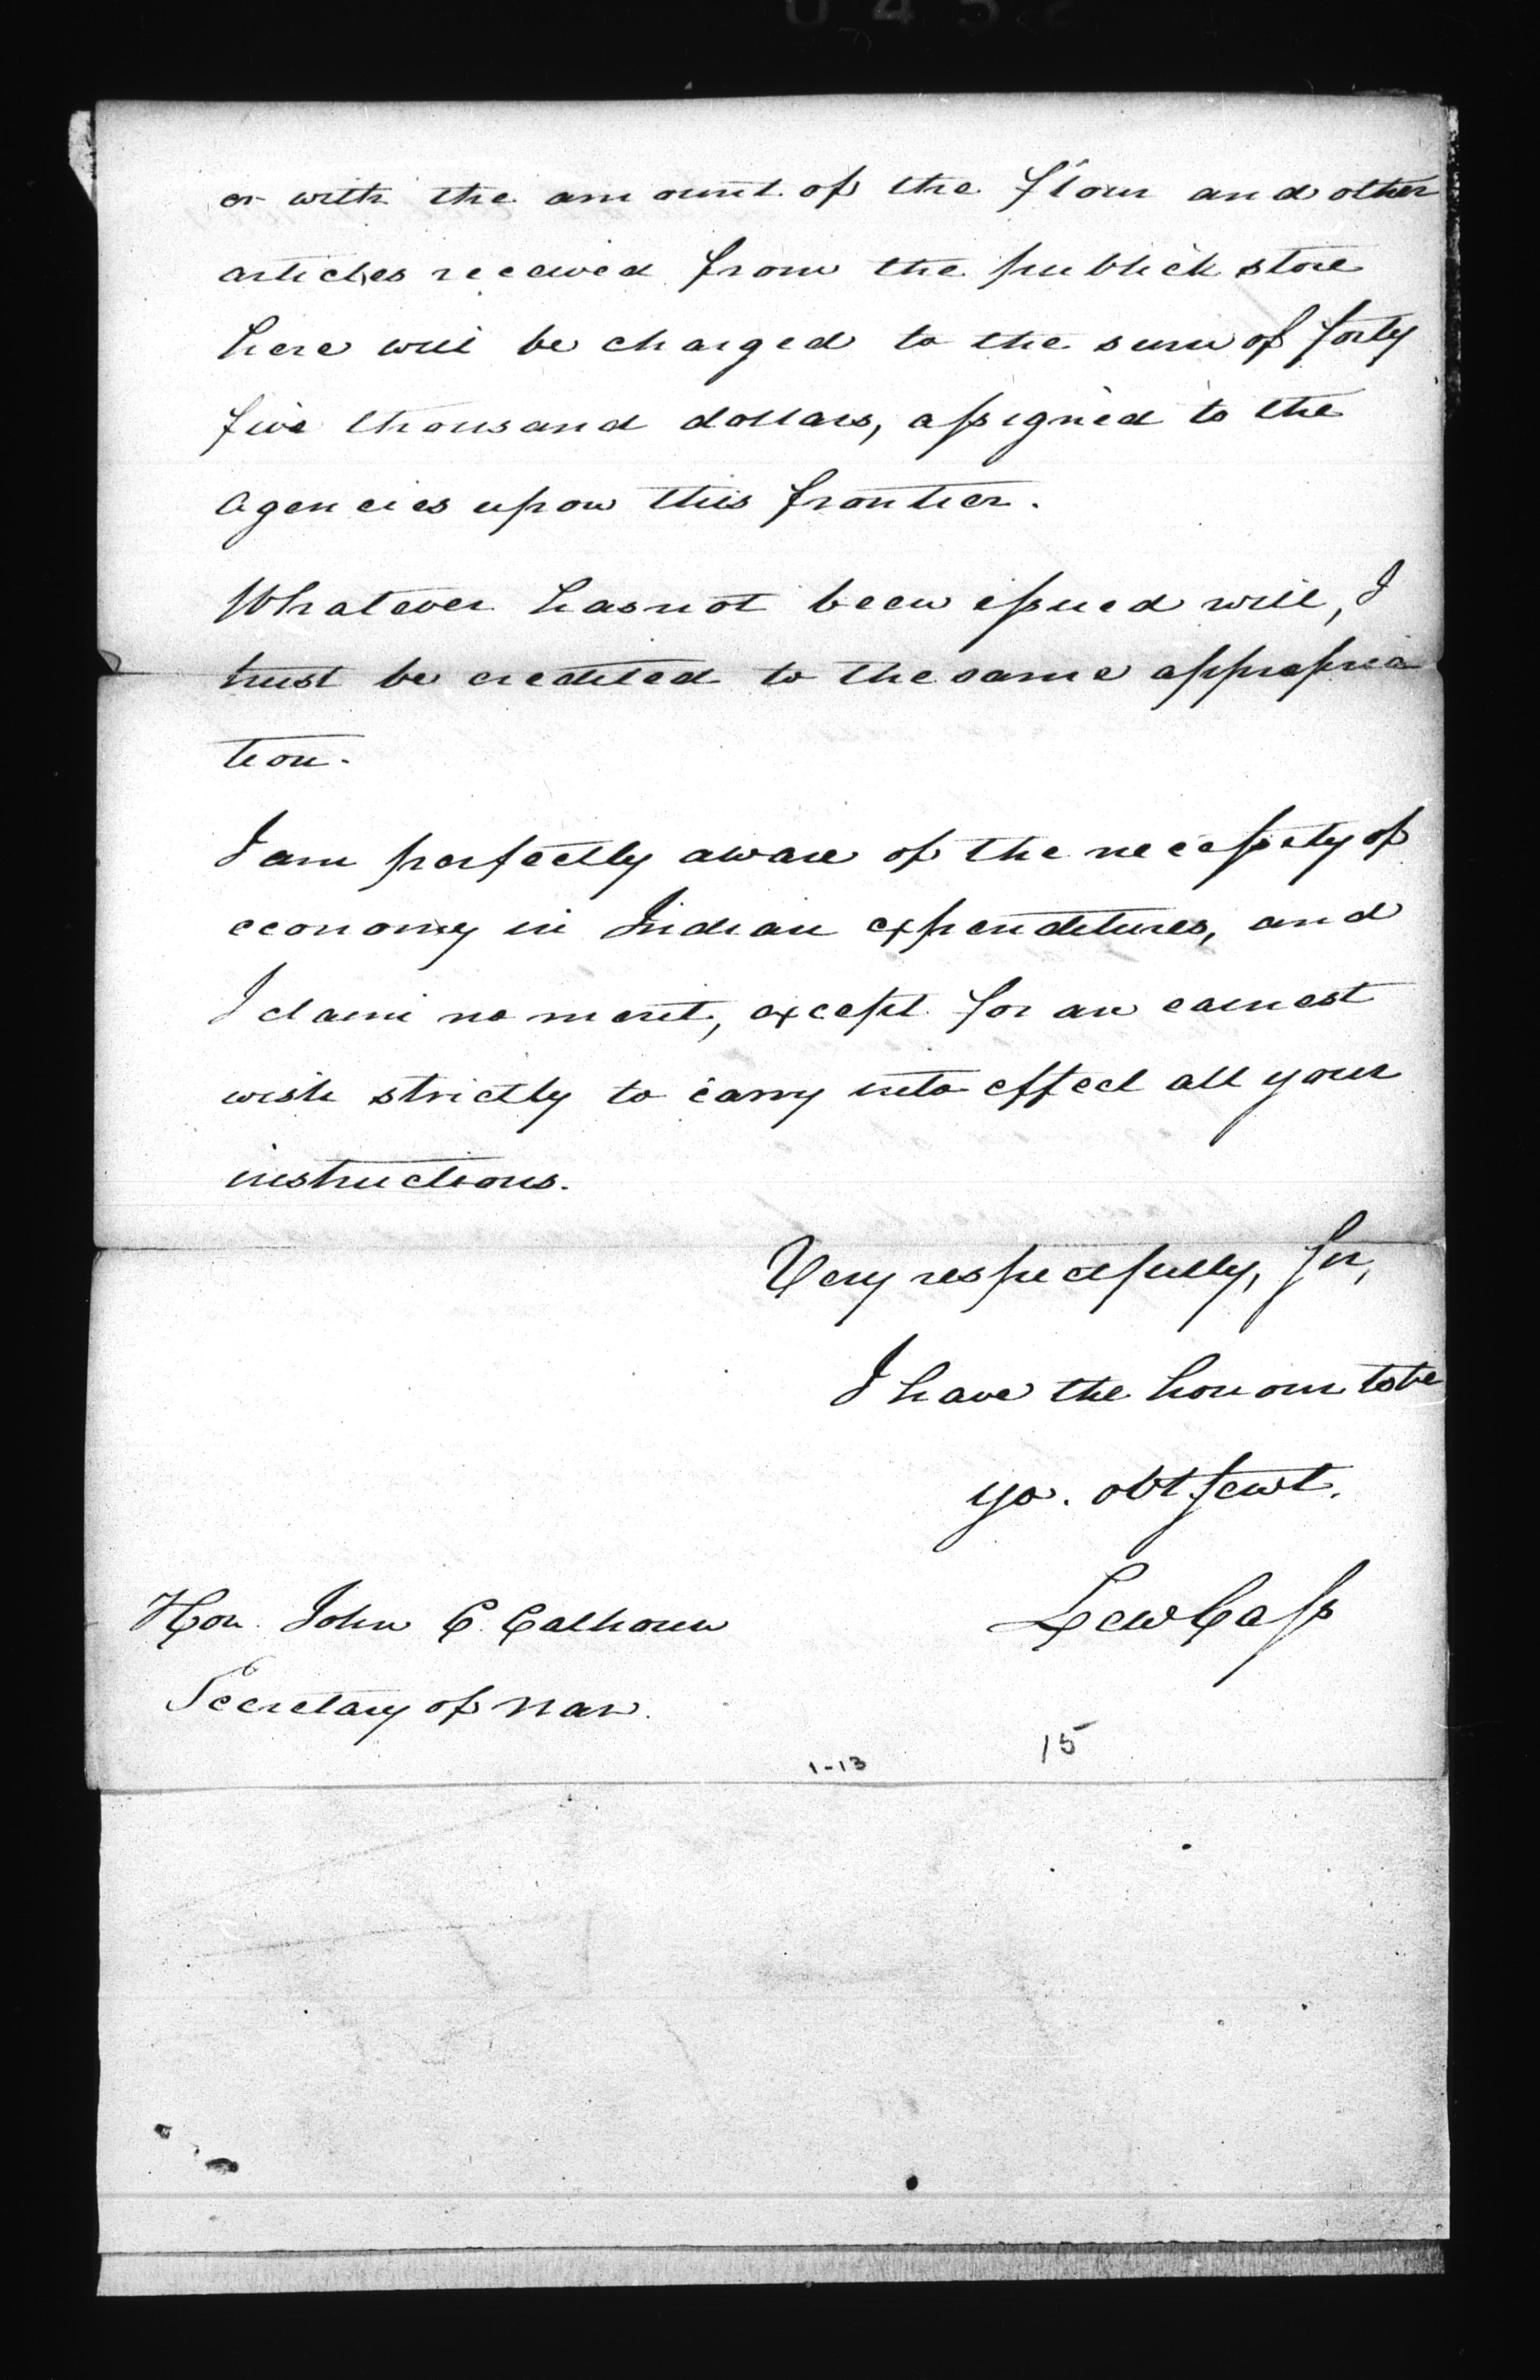 or with the amount of the flour and other
articles received from the publick store
here will be charged to the sum of forty
five thousand dollars, assigned to the
Agencies upon this frontier.
Whatever has not been issued will, I
trust be credited to the same appropria
tion.
I am perfectly aware of the necessity of
economy in Indian expenditures, and
I claim no merit, except for an earnest
wish strictly to carry into effect all your
instructions.
Very respectfully, Sir,
I have the honour to be
yo. obt servt.
Lew Cass
Hon. John C. Calhoun
Secretary of War.
15
1-13